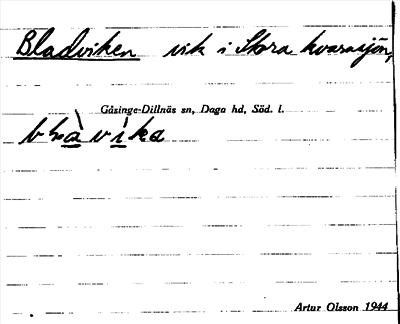 Bladviken vik i Stora kvarnsjön,
Gåsinge-Dillnäs sn, Daga hd, Söd. l.
Artur Olsson 1944